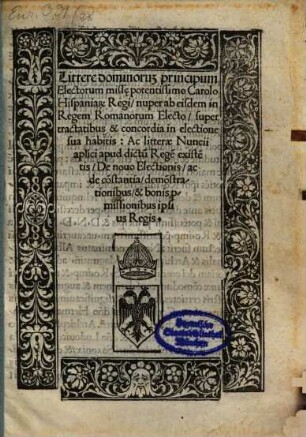 Eur. 391/28
Littere dominorũ principum
Electorum misse potentissimo Carolo
Hispaniarũ Regi/ nuper ab eisdem in
Regem Romanorum Electo/ super
tractatibus & concordia in electione
sua habitis : Ac litterę Nuncii
aplici apud dictũ Regẽ existẽ
tis/ De nouo Electionis/ ac
de cõstantia/ demõstra-
tionibus/ & bonis p-
missionibus ipsi
us Regis.